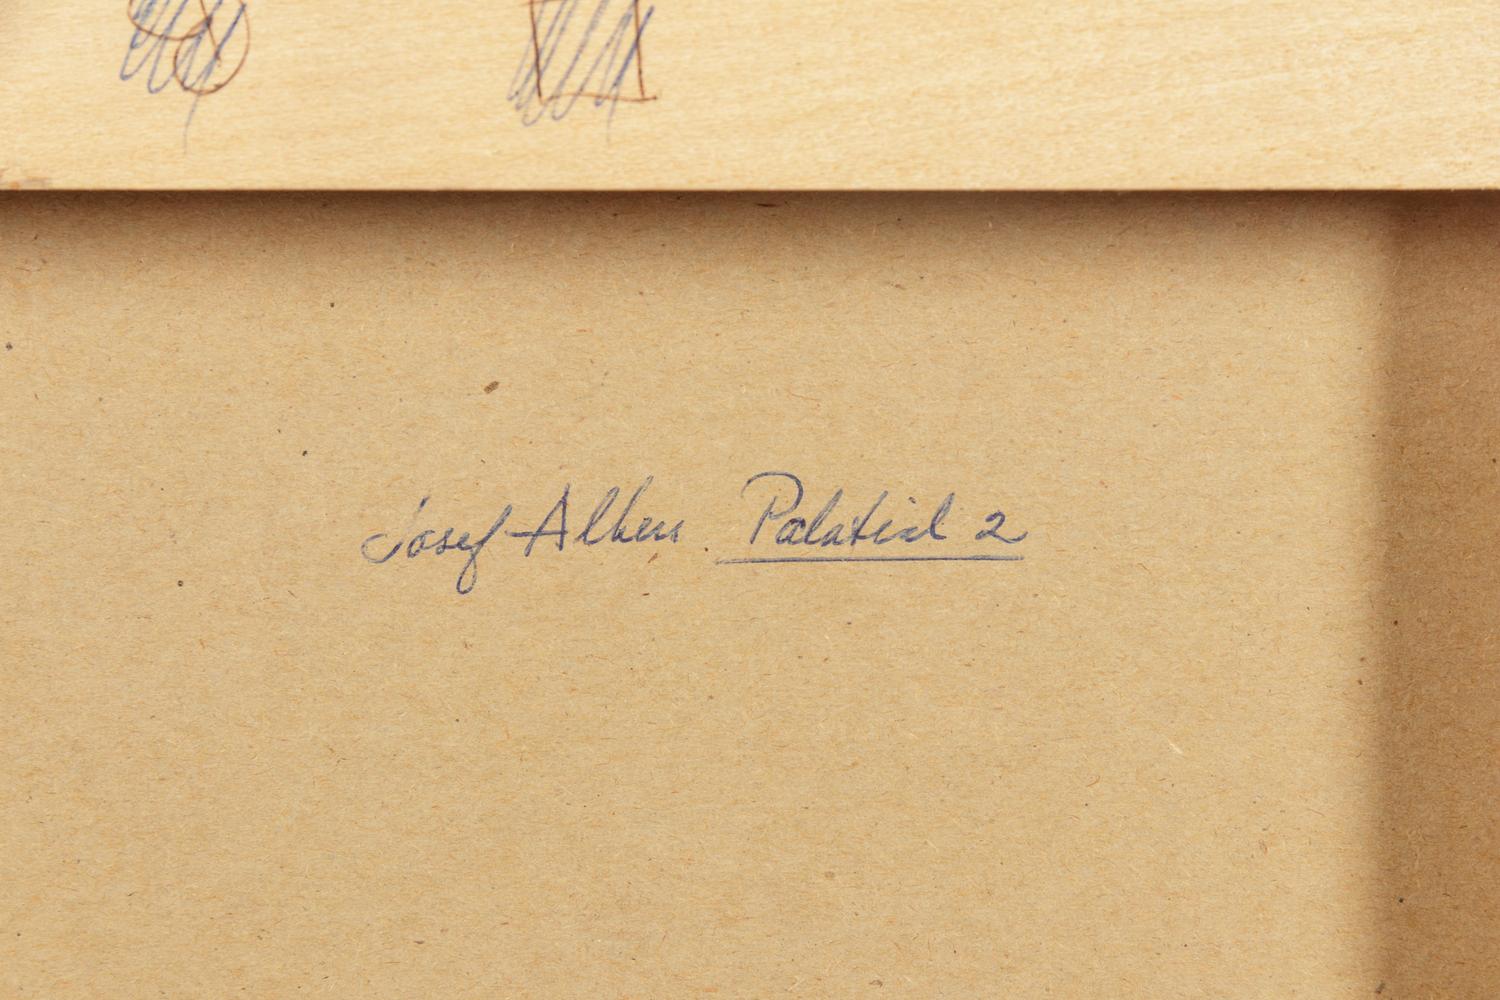 Josef Albers Palatial 2